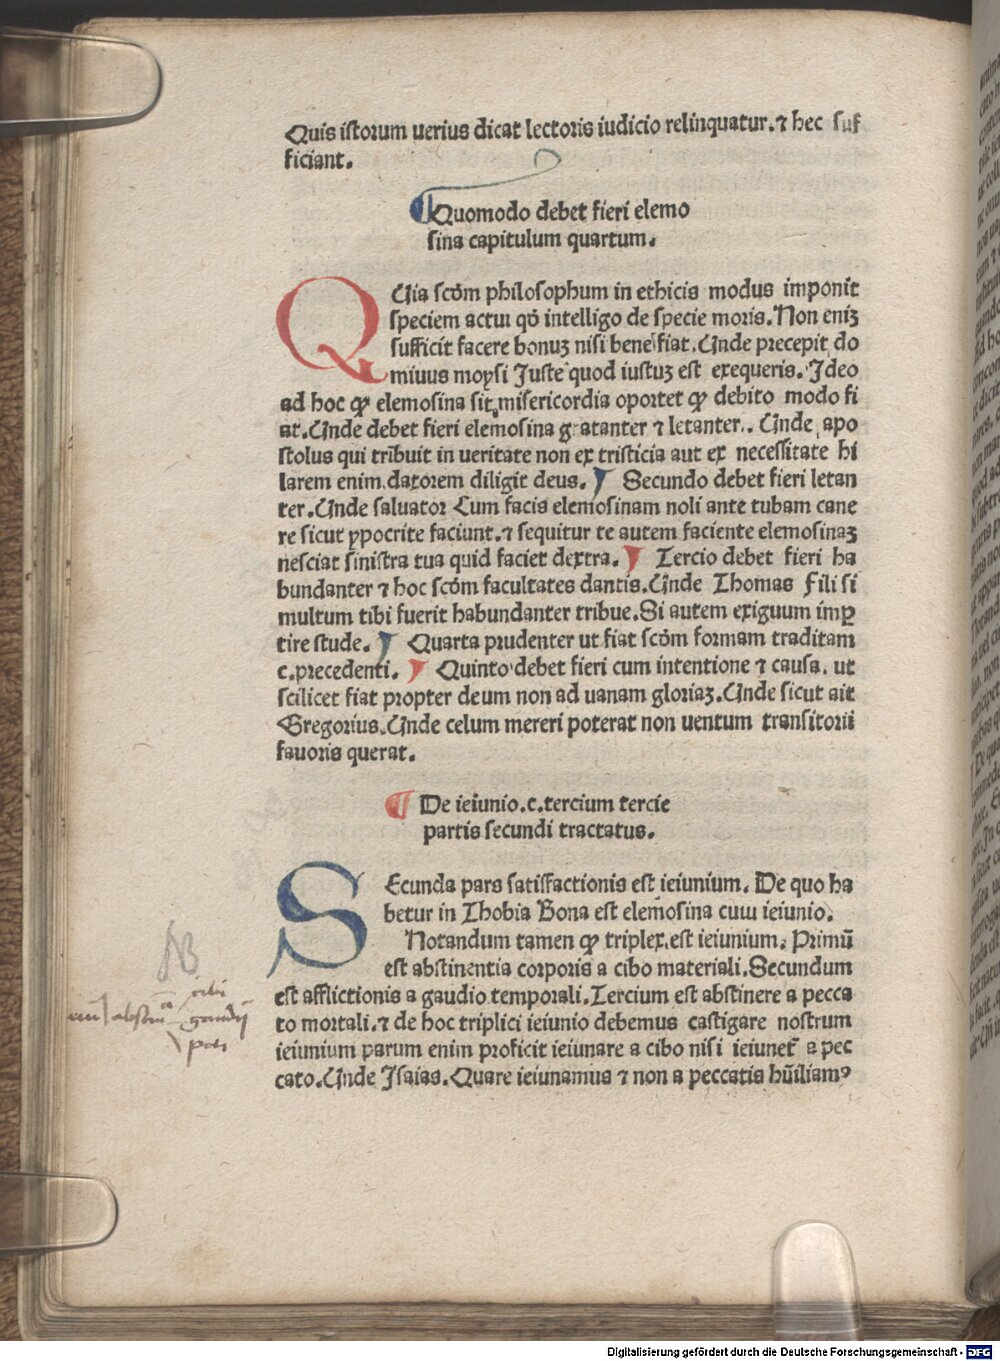 Quis istorum uerius dicat lectoris iudicio relinquatur.⁊ hec suf
ficiant.
Quomodo debet fieri elemo
sina capitulum quartum.
QUia scd̄m philosophum in ethicis modus imponit
speciem actui qd̄ intelligo de specie moris.Non eniꝫ
sufficit facere bonuꝫ nisi bene fiat.Unde precepit do
minus moysi Juste quod iustuꝫ est exequeris. Ideo
ad hoc ꝙ elemosina sit misericordia oportet ꝙ debito modo fi
at.Unde debet fieri elemosina gratanter ⁊ letanter. Unde apo
stolus qui tribuit in ueritate non ex tristicia aut ex necessitate hi
larem enim datorem diligit deus. Secundo debet fieri letan
ter.Unde saluator Cum facis elemosinam noli ante tubam cane
re sicut ypocrite faciunt.⁊ sequitur te autem faciente elemosinaꝫ
nesciat sinistra tua quid faciet dextra. Tercio debet fieri ha
bundanter ⁊ hoc scd̄m facultates dantis.Unde Thomas Fili si
multum tibi fuerit habundanter tribue.Si autem exiguum imꝑ
tire stude. Quarta prudenter ut fiat scd̄m formam traditam
c.precedenti. Quinto debet fieri cum intentione ⁊ causa. ut
scilicet fiat propter deum non ad uanam gloriaꝫ.Unde sicut ait
Gregorius.Unde celum mereri poterat non uentum transitorii
fauoris querat.
De ieiunio.c.tercium tercie
partis secundi tractatus.
SEcunda pars satisfactionis est ieiunium. De quo ha
betur in Thobia Bona est elemosina cum ieiunio.
Notandum tamen ꝙ triplex est ieiunium. Primū
est abstinentia corporis a cibo materiali.Secundum
est afflictionis a gaudio temporali.Tercium est abstinere a pecca
to mortali.⁊ de hoc triplici ieiunio debemus castigare nostrum
ieiunium parum enim proficit ieiunare a cibo nisi ieiunet̄ a pec
cato.Unde Isaias.Quare ieiunamus ⁊ non a peccatis hūiliamꝰ
NB
cibi
gaudii
Digitalisierung gefördert durch die Deutsche Forschungsgemeinschaft - DFG